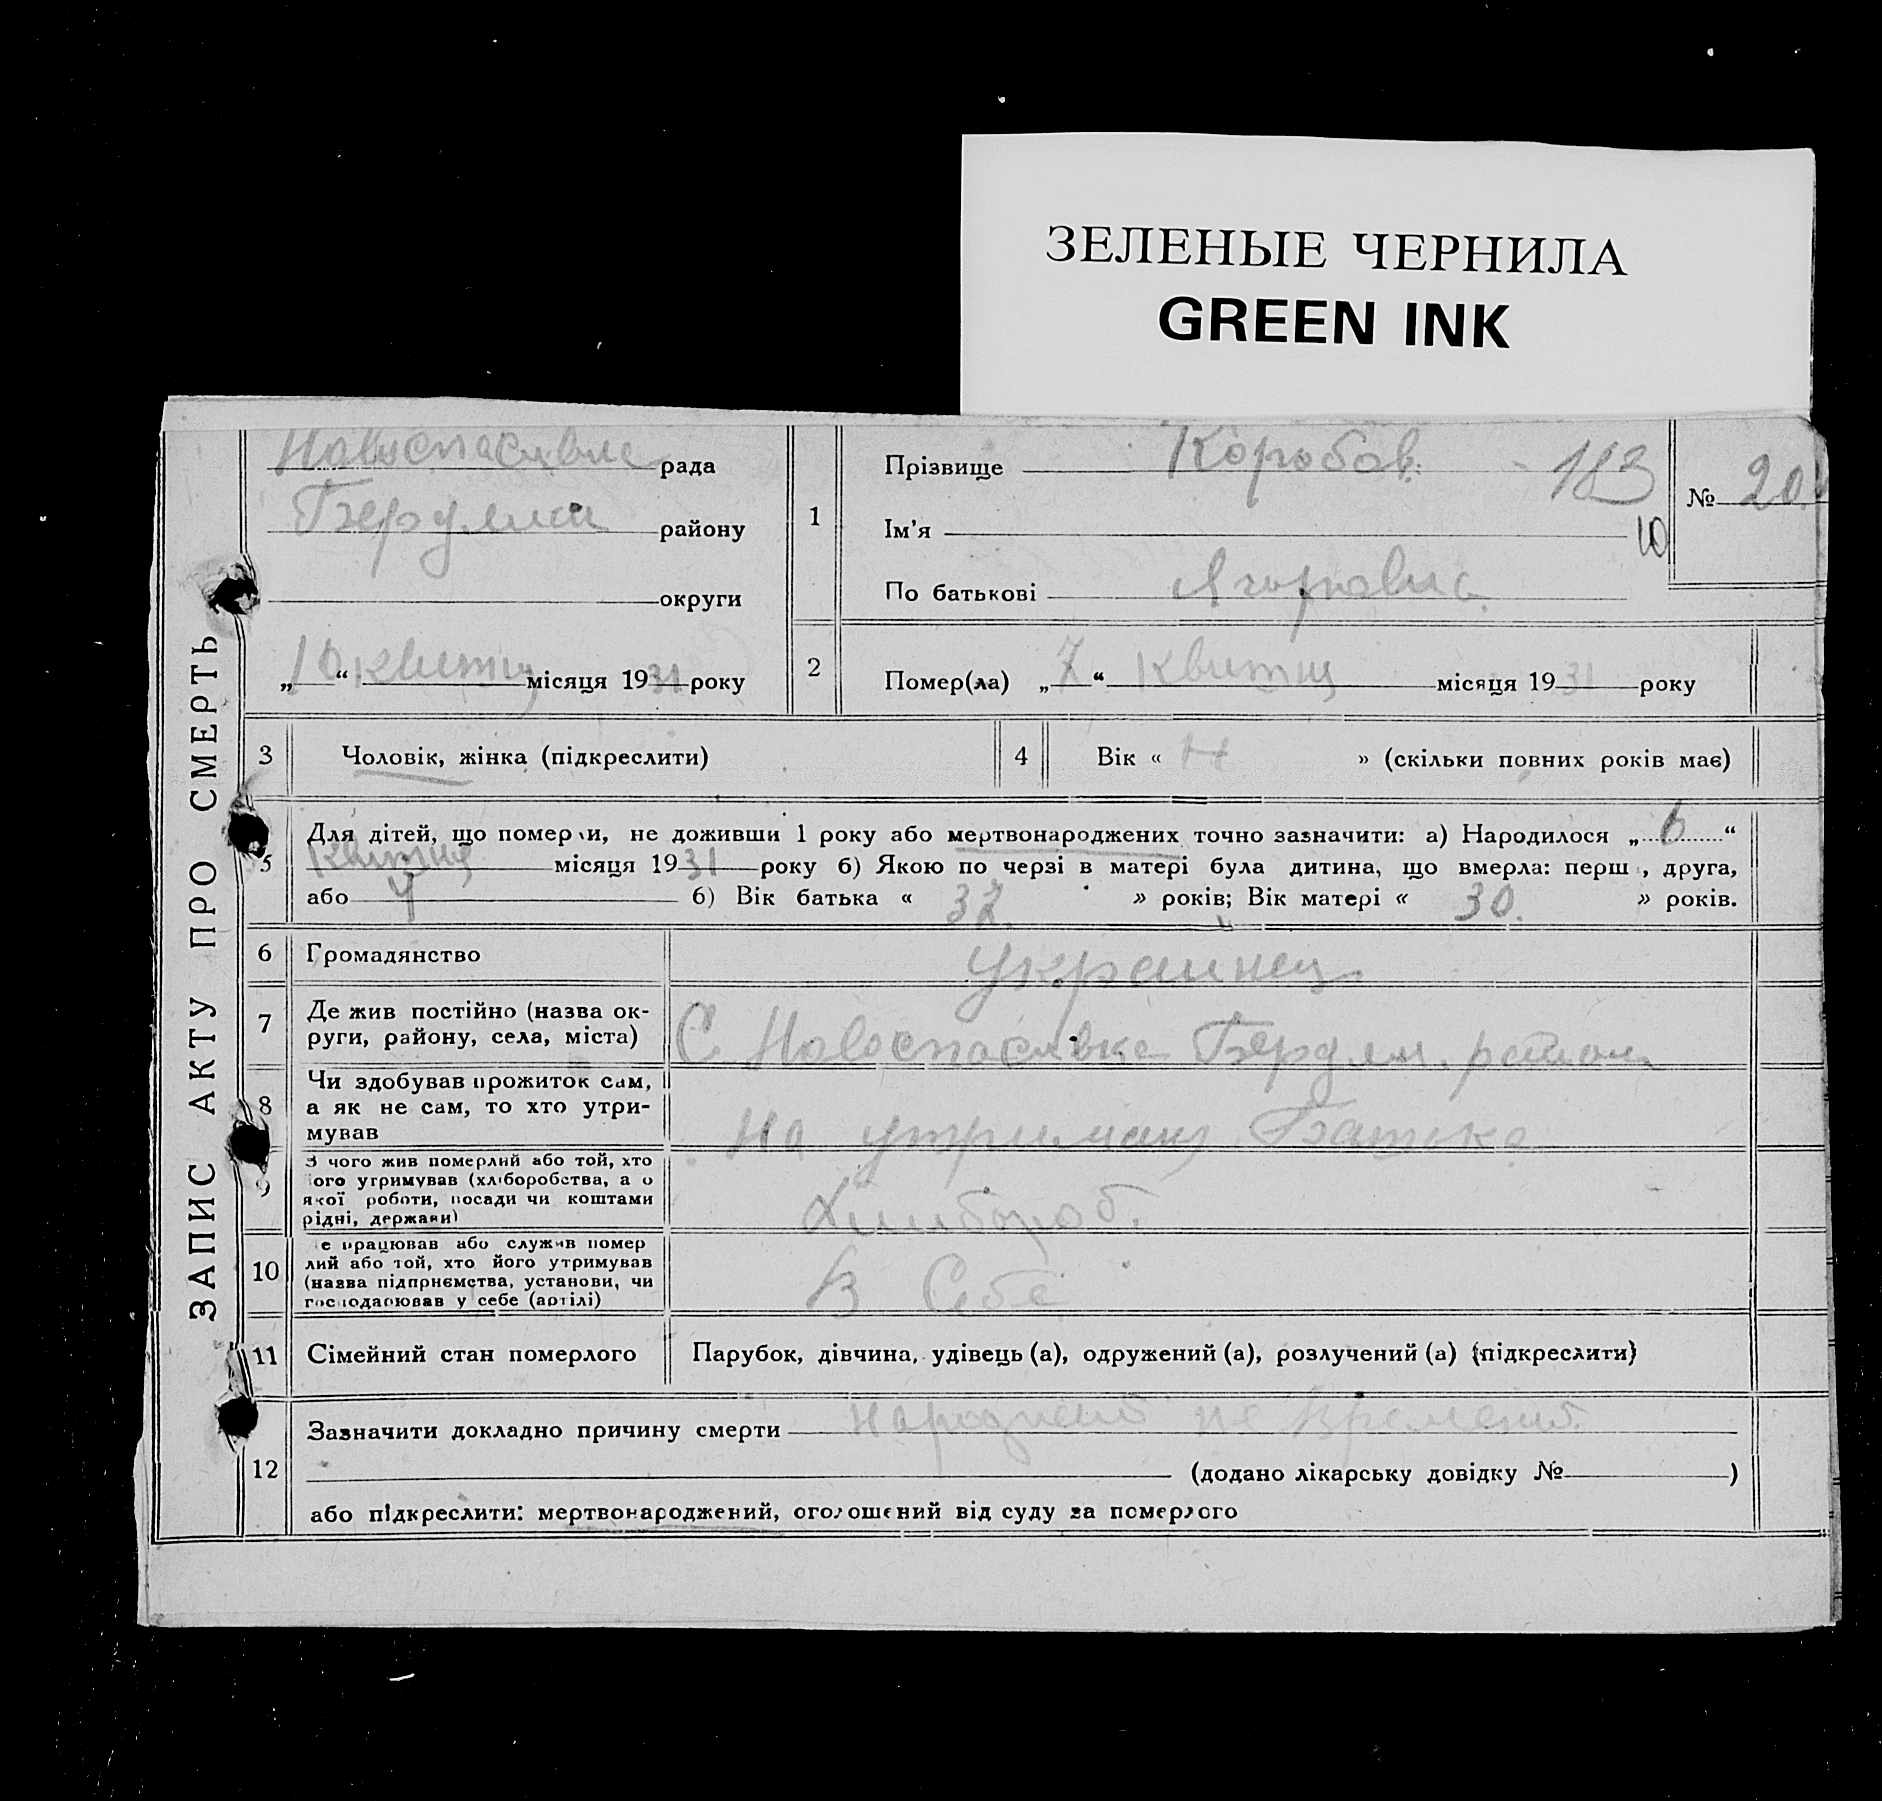 ЗЕЛЕНЫЕ ЧЕРНИЛА
GREEN INK
ЗАПИС АКТУ ПРО СМЕРТЬ
Новоспасивле рада
района
району
округи
„10“ квитня місяця 1931 року
1
Прізвище Коробов. 183
Ім’я 10
По батькові
№ 20
2
Помер(ла) „7“ Квитня місяця 1931 року
3 Чоловік, жінка (підкреслити)
4 Вік « » (скільки повних років має)
5 Для дітей, що померли, не доживши 1 року або мертвонароджених точно зазначити: а) Народилося „6“
Квитня місяця 1931 року б) Якою по черзі в матері була дитина, що вмерла: перш , друга,
або 4 б) Вік батька « 32 » років; Вік матері « 30. » років.
6 Громадянство украинец
7 Де жив постійно (назва ок-
руги, району, села, міста) С Новоспасивка Бердян. район
8 Чи здобував прожиток сам,
а як не сам, то хто утри-
мував На утриманя Батька
9 З чого жив померлий або той, хто
його утримував (хліборобства, а о
якої роботи, посади чи коштами
рідні, держави) Хлибороб.
10 Де працював або служив помер
лий або той, хто його утримував
(назва підприємства, установи, чи
господарював у себе (артілі) В Себе
11 Сімейний стан померлого Парубок, дівчина, удівець (а), одружений (а), розлучений (а) (підкреслити)
12 Зазначити докладно причину смерти народжено не времено.
(додано лікарську довідку № )
або підкреслити: мертвонароджений, оголошений від суду за померлого